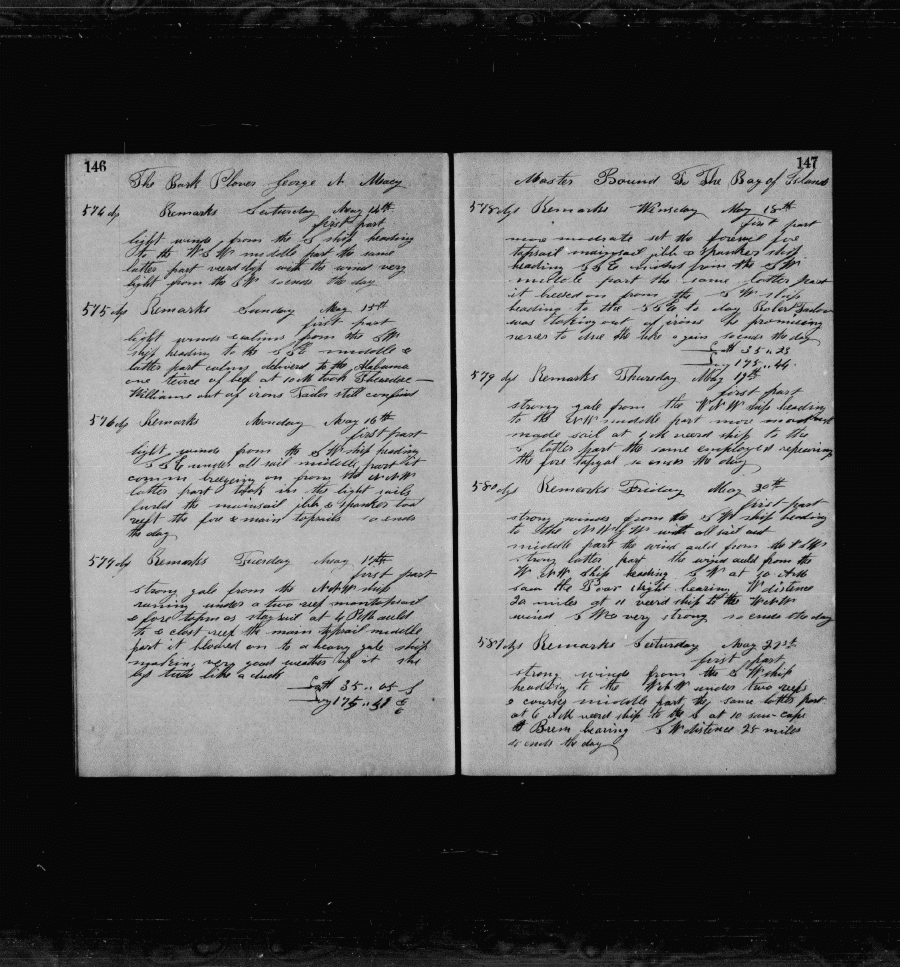 146
The Bark Plover George A Macy
574 dys Remarks Saturday May 14th
first part
light winds from the S ship heading
to the W S W middle part the same
latter part veerd ship with the wind very
light from the SW so ends the day
575 dys Remarks Sunday May 15th
first part
light winds & calms from the SW
ship heading to the S S E middle &
latter part calm delivers to the Alabama
one teirce of beef at 10 AM took
Williams out of irons Tailor still confind
576 dys Remarks Monday May 16th
first part
light winds from the S W ship heading
S S E under all sail middle part it
comm breezing on from the N N W
latter part took in the light sails
furld the mainsail jibb & spanker and
reeft the fore & main topsails so ends
the day
577 dys Remarks Tuesday May 17th
first part
strong gale from the NNW ship
runing under a two reef maintopsail
& fore topmas staysail at 4 PM
to & close reef the main topsail middle
part it blowed on to a heavy gale ship
making very good weather of it she
lys like a duck
Latt 35 .. 05 S
Long 175 .. 51 E
147
Master Bound To The Bay of Islands
578 dys Remarks Wensday May 18th
first part
more modrate set the foresail fore
topsail mainsail jibb & spanker ship
heading S S E from the SW
middle part the same latter part
it breesd on from the S W ship
heading to the S S E to day Tailor
was taking out of irons he promising
never to do the like again so ends the day
Latt 35 .. 23
Long 175 .. 44
579 dys Remarks Thursday May 19th
first part
strong gale from the W N W ship heading
to the middle part more
made sail at veerd ship to the
S latter part the same employed repairing
the fore topsail so ends the day
580 dys Remarks Friday May 20th
first part
strong winds from the S W ship heading
to the with all sail
middle part the wind from the
strong latter part the wind from the
W N W ship heading S W at 10 AM
saw the hight bearing W distence
20 miles at 11 veerd ship to the
wind very strong so ends the day
581 dys Remarks Saturday May 21st
first part
strong winds from the S W ship
heading to the under two reefs
& courses middle part the same latter part
at 6 AM veerd ship to the S at 10 saw cape
Brem bearing S W distence 25 miles
so ends the day